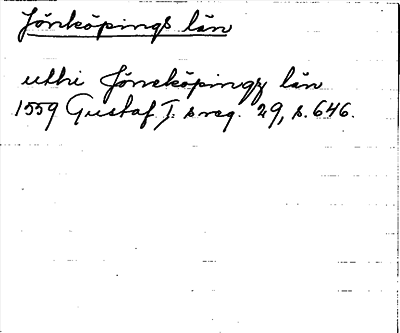 Jönköpings län
utthi Jöneköpingz län
1559 Gustaf I:s reg. 29, s. 646.